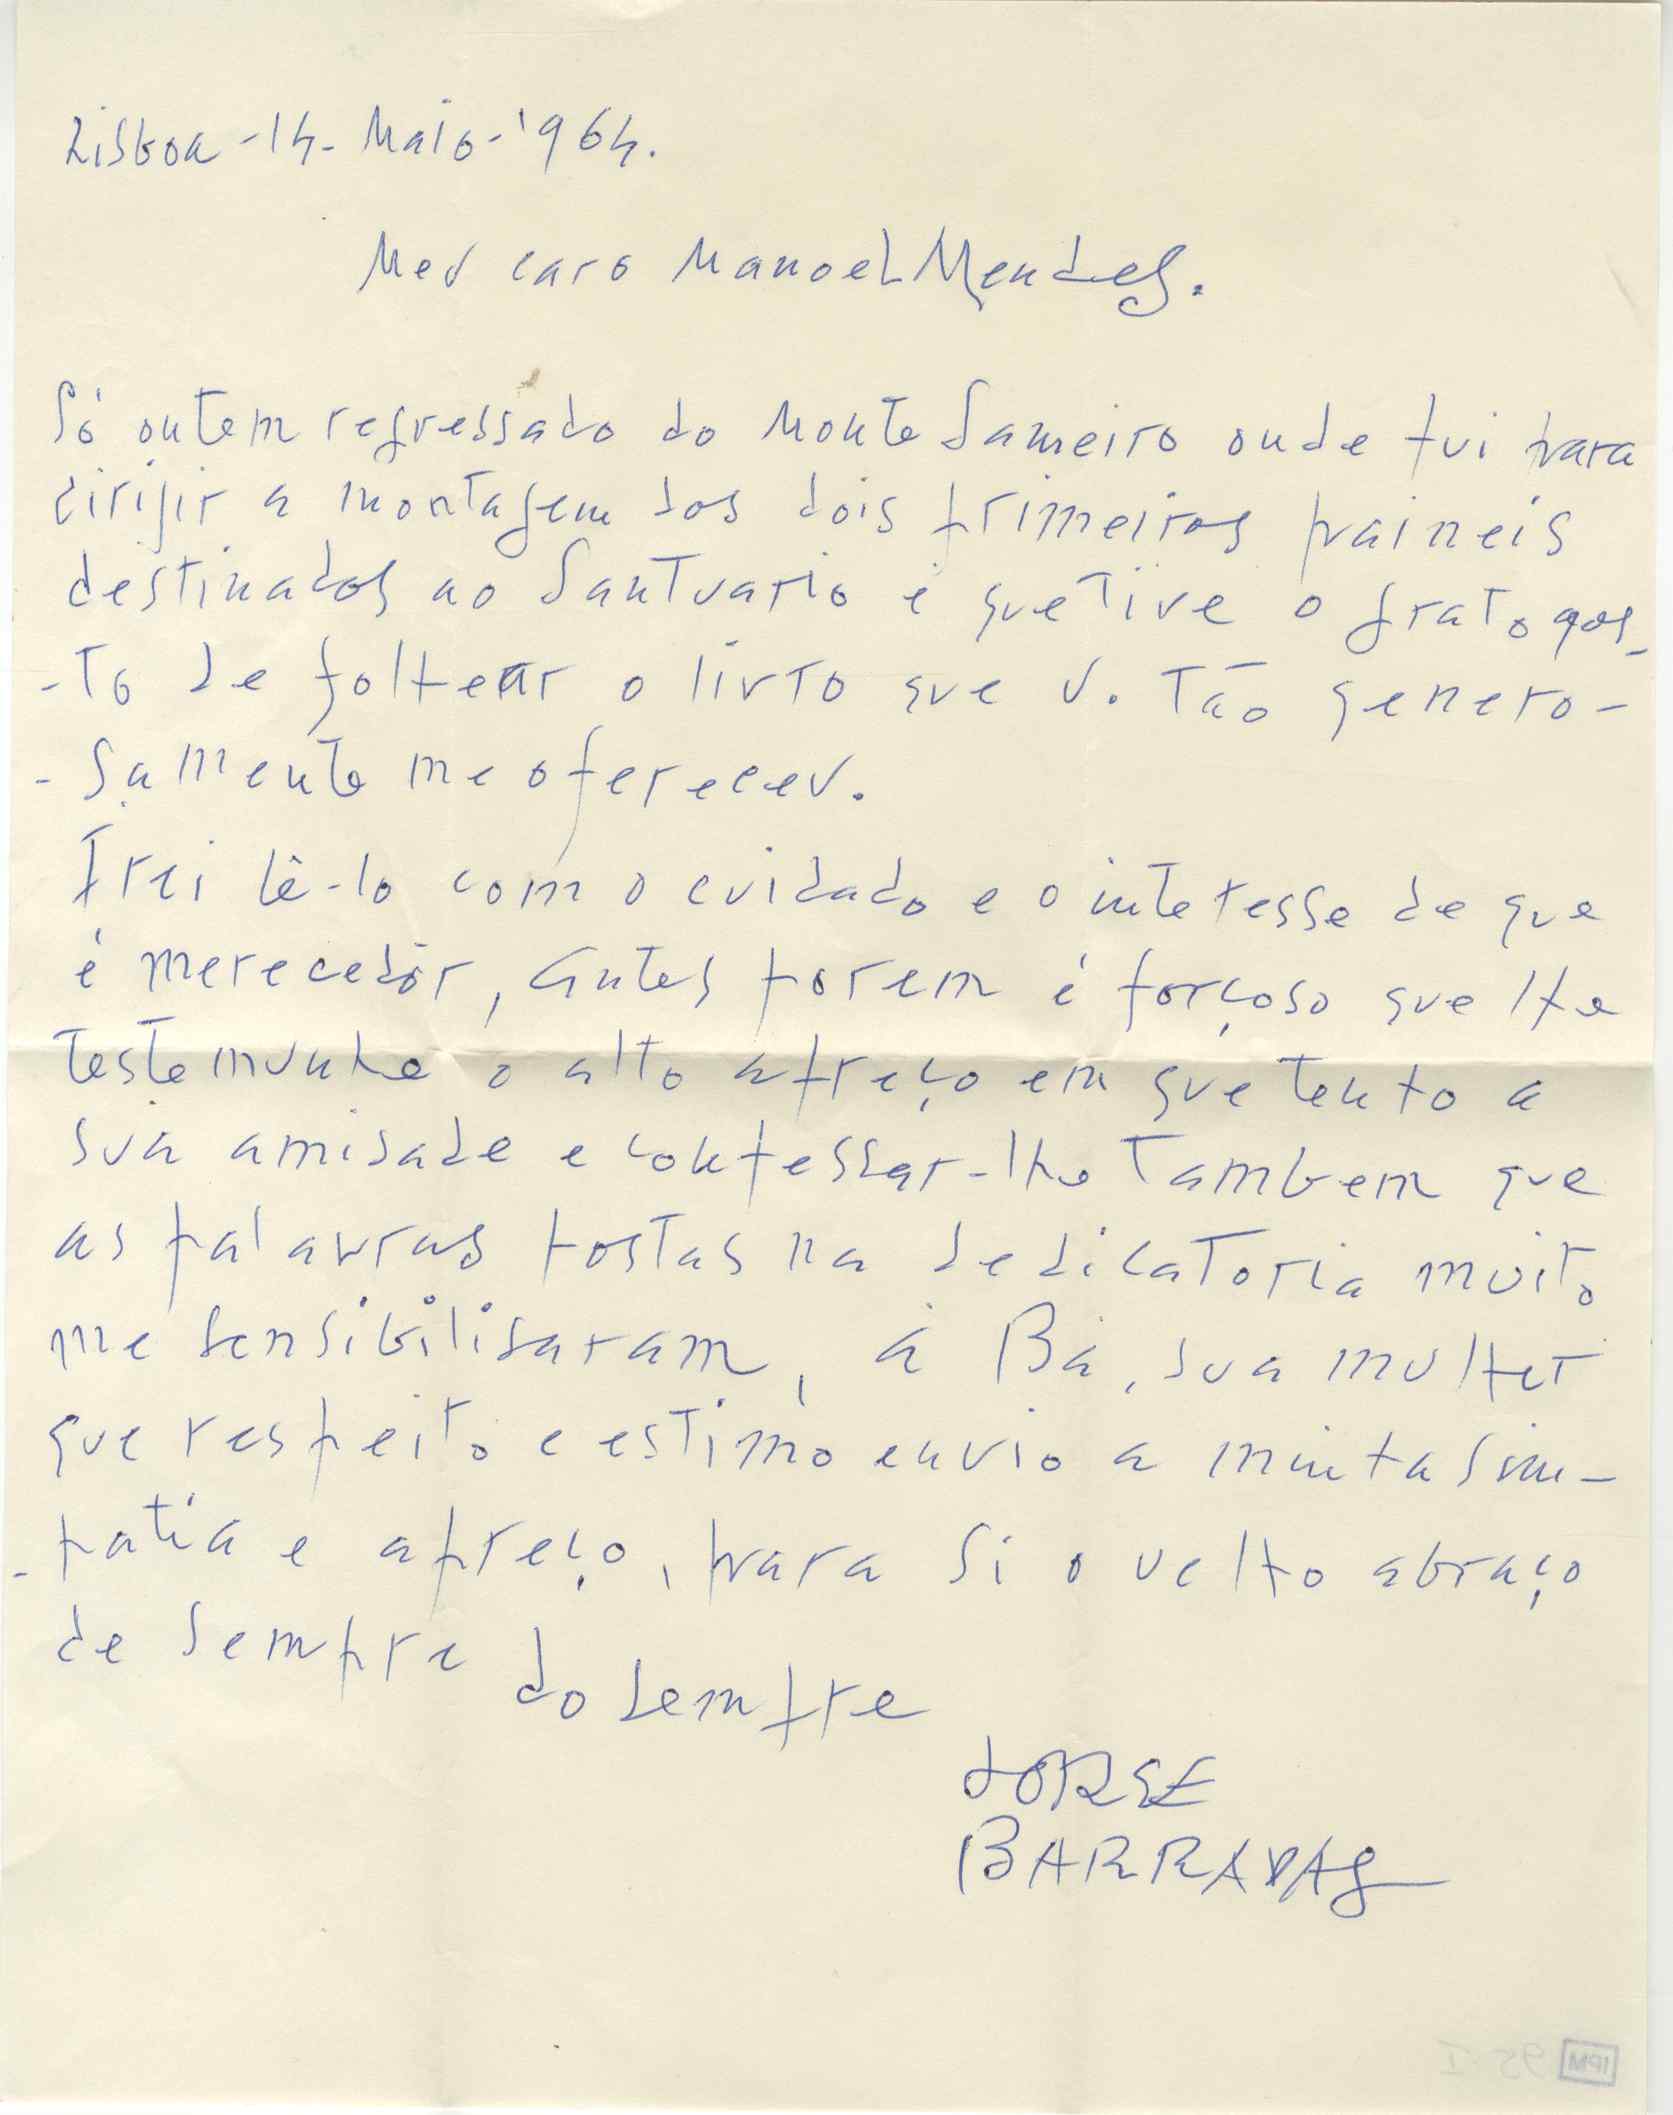 Lisboa - 14 - Maio - 1964.
Meu caro Manoel Mendes.
Só ontem regressado do Monte Sameiro onde fui para
dirijir a montagem dos dois primeiros paineis
destinados ao Santuario é que tive o grato gos-
-to de folhear o livro que V. tão genero-
-samente me ofereceu.
Irei lê-lo com o cuidado e o interesse de que
é merecedôr, Antes porem é forçoso que lhe
testemunhe o alto apreço em que tenho a
sua amisade e confessar-lhe tambem que
as palavras postas na dedicatoria muito
me sensibilisaram, á Bá, sua mulher
que respeito e estimo envio a minha sim-
-patia e apreço, para si o velho abraço
de sempre do sempre
JORGE
BARRADAS
IPM 95 I